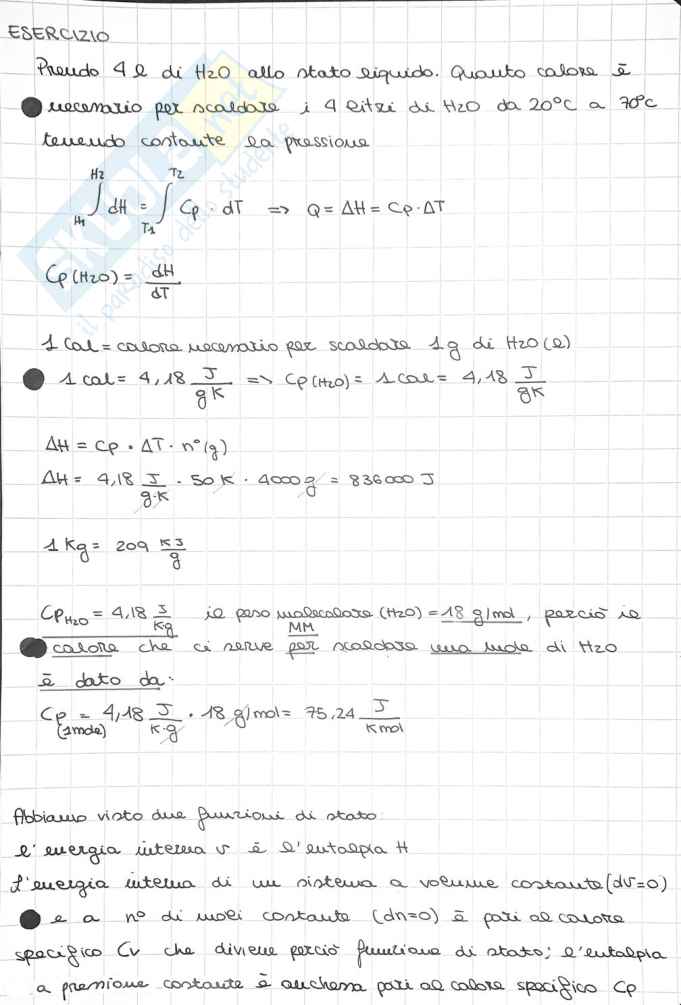 ESERCIZIO
Prendo 4 l di H2O allo stato liquido. Quanto calore è
necessario per scaldare i 4 litri di H2O da 20°C a 70°C
tenendo costante la pressione
∫H1^H2 dH = ∫T1^T2 Cp · dT => Q = ΔH = Cp · ΔT
Cp(H2O) = dH/dT
1 Cal = calore necessario per scaldare 1g di H2O(l)
1 cal = 4,18 J/gK => Cp(H2O) = 1 cal = 4,18 J/gK
ΔH = Cp · ΔT · n°(g)
ΔH = 4,18 J/g·K · 50 K · 4000 g = 836000 J
1 Kg = 209 KJ/g
CpH2O = 4,18 J/Kg il peso molecolare (H2O) = 18 g/mol, perciò il
MM
calore che ci serve per scaldare una mole di H2O
è dato da:
Cp(1mole) = 4,18 J/K·g · 18 g/mol = 75,24 J/Kmol
Abbiamo visto due funzioni di stato:
l'energia interna U è l'entalpia H
L'energia interna di un sistema a volume costante (dV=0)
e a n° di moli costante (dn=0) è pari al calore
specifico Cv che diviene perciò funzione di stato; l'entalpia
a pressione costante è anchessa pari al calore specifico Cp
SKUOLA.net
il paradiso dello studente